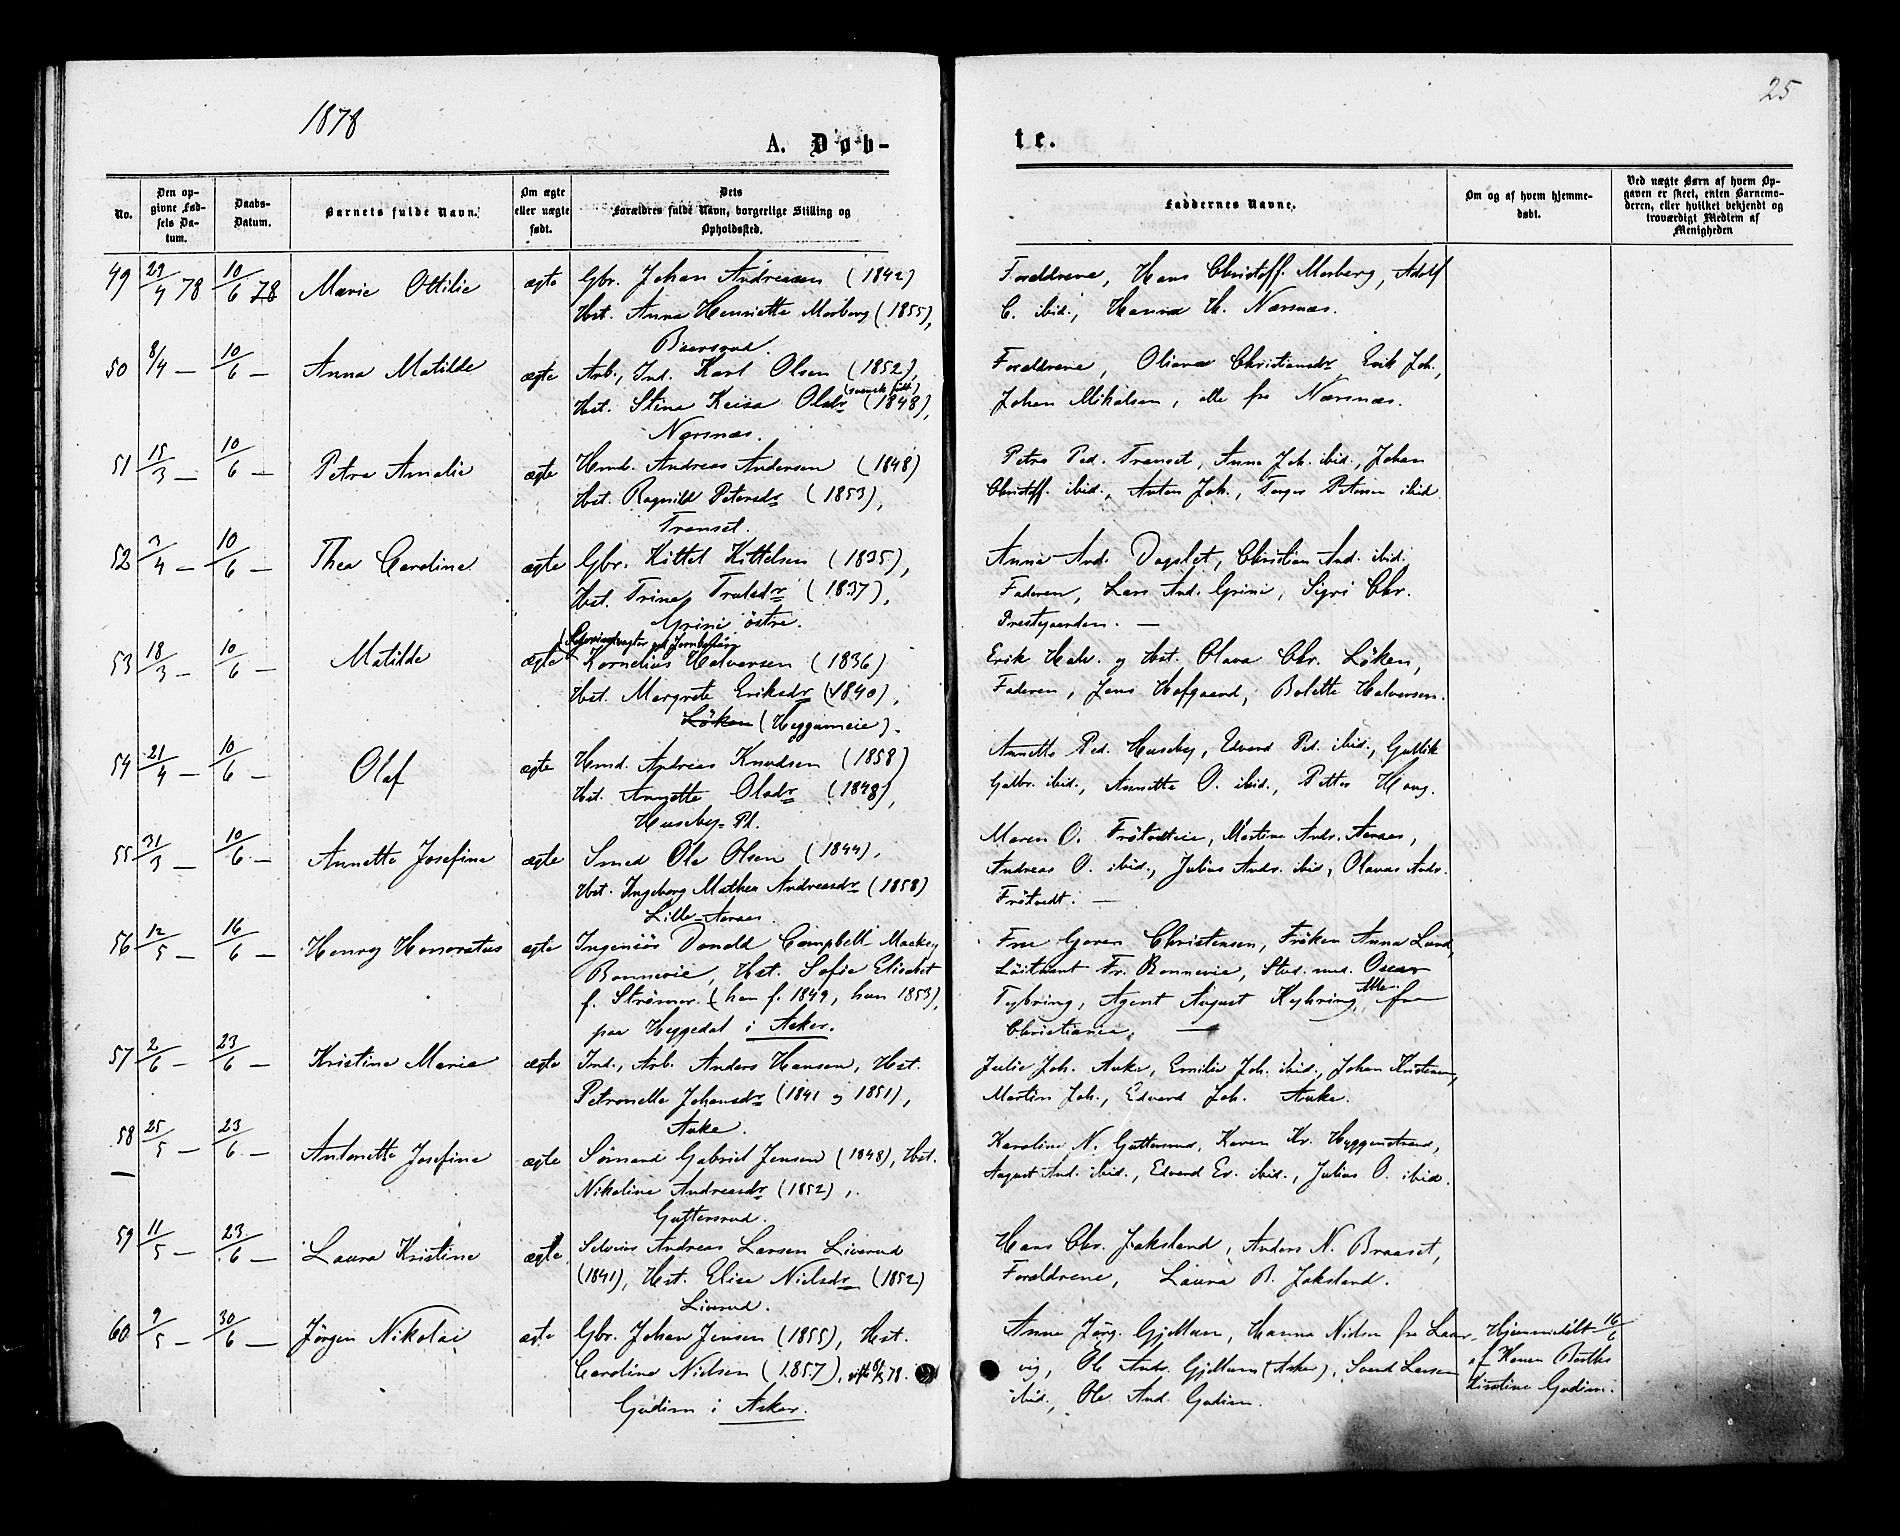 25
1878
A. Døb-
te.
No.
Den op-
givne Fød-
sels Da-
tum.
Daabs-
Datum.
Barnets fulde Navn.
Om ægte
eller uægte
født.
Dets
Forældres fulde Navn, borgerlige Stilling og
Opholdssted.
Faddernes Navne.
Om og af hvem hjemme-
døbt.
Ved uægte Børn af hvem Op-
gaven er skeet, enten Barnemo-
deren, eller hvilket bekjendt og
troværdigt Medlem af
Menigheden
49 29/4 78 10/6 78 Marie Ottilie ægte Gbr. Johan Andreasen (1842)
Hst. Anna Henriette Morberg (1855),
Baarsrud.
Forældrene, Hans Christoff. Morberg, Adolf
C. ibid., Hanna H. Nærsnæs.
50 8/4 — 10/6 — Anna Matilde ægte Arb., Ind. Karl Olsen (1852),
(svensk født)
Hst. Stina Keisa Olsdr (1848),
Nærsnæs.
Forældrene, Oliana Christiansdr, Erik Joh.,
Johan Mikalsen, alle fra Nærsnæs.
51 15/3 — 10/6 — Petra Amalie ægte Hmd. Andreas Andersen (1848)
Hst. Ragnild Petersdr (1853),
Transet.
Petra Ped. Transet, Anna Joh. ibid., Johan
Christoff. ibid., Anton Joh., Petersen ibid.
52 3/4 — 10/6 — Thea Caroline ægte Gbr. Kittel Kittelsen (1835),
Hst. Trine Trulsdr (1837),
Grini östre.
Anna And. Dagslet, Christian And. ibid.
Faderen, Lars And. Grini, Sigri Chr.
Prestegaarden. —
53 18/3 — 10/6 — Matilde ægte
Kornelius Halvorsen (1836)
Hst. Margrete Eriksdr (1840),
Löken (Heggumeie).
Erik Halv. og Hst. Olava Chr. Löken,
Faderen, Jens Hofgaard, Bolette Halvorsen.
54 21/4 — 10/6 — Olaf ægte Hmd. Andreas Knudsen (1858)
Hst. Annette Olsdr (1848),
Huseby-Pl.
Annette Ped. Huseby, Edvard Ped. ibid., Gulbik
Gulbr. ibid., Annette O. ibid., Petter Haug.
55 31/3 — 10/6 — Annette Josefine ægte Smed Ole Olsen (1844),
Hst. Ingeborg Mathea Andreasdr (1858)
Lille-Aaraas.
Maren O. Frötvedteie, Martine Andr. Aaraas,
Andreas O. ibid., Julius Andr. ibid., Olavus Andr.
Frötvedt. —
56 12/5 — 16/6 — Henry Honoratus ægte Ingeniör Donald Campbell Mackey
Bonnevie, Hst. Sofie Elisabet
f. Strömer. (han f. 1849, hun 1853),
paa Heggedal i Asker.
Frue Goren Christensen, Fröken Anna Lund,
Löitnant Fr. Bonnevie, Stud. med. Oscar
Tybring, Agent August Kyhring, Alle fra
Christiania. —
57 2/6 — 23/6 — Kristine Marie ægte Ind., Arb. Anders Hansen, Hst.
Petronelle Johansdr (1841 og 1851),
Auke.
Julie Joh. Auke, Emilie Joh. ibid., Johan Kristensen,
Martin Joh., Edvard Joh. Auke.
58 25/5 — 23/6 — Antonette Josefine ægte Sömand Gabriel Jensen (1848), Hst.
Nikoline Andreasdr (1852),
Guttersrud.
Karoline N. Guttersrud, Karen Kr. Hyggenstrand,
August And. ibid., Edvard Er. ibid., Julius O. ibid.
59 11/5 — 23/6 — Laura Kristine ægte Selveier Andreas Larsen Liverud
(1841), Hst. Elise Nielsdr (1852)
Liverud.
Hans Chr. Jaksland, Anders N. Braaset,
Forældrene, Laura B. Jaksland.
60 9/5 — 30/6 — Jörgen Nikolai ægte Gbr. Johan Jensen (1855), Hst.
Caroline Nielsen (1857), 78.
Gudim i Asker.
Anne Jörg. Gjellum, Hanna Nielsen fra Laur-
vig, Ole Andr. Gjellum (Asker), Svend Larsen
ibid., Ole And. Gudim.
Hjemmedöbt 16/6
af Karen Berthe
Kirstine Gudim.